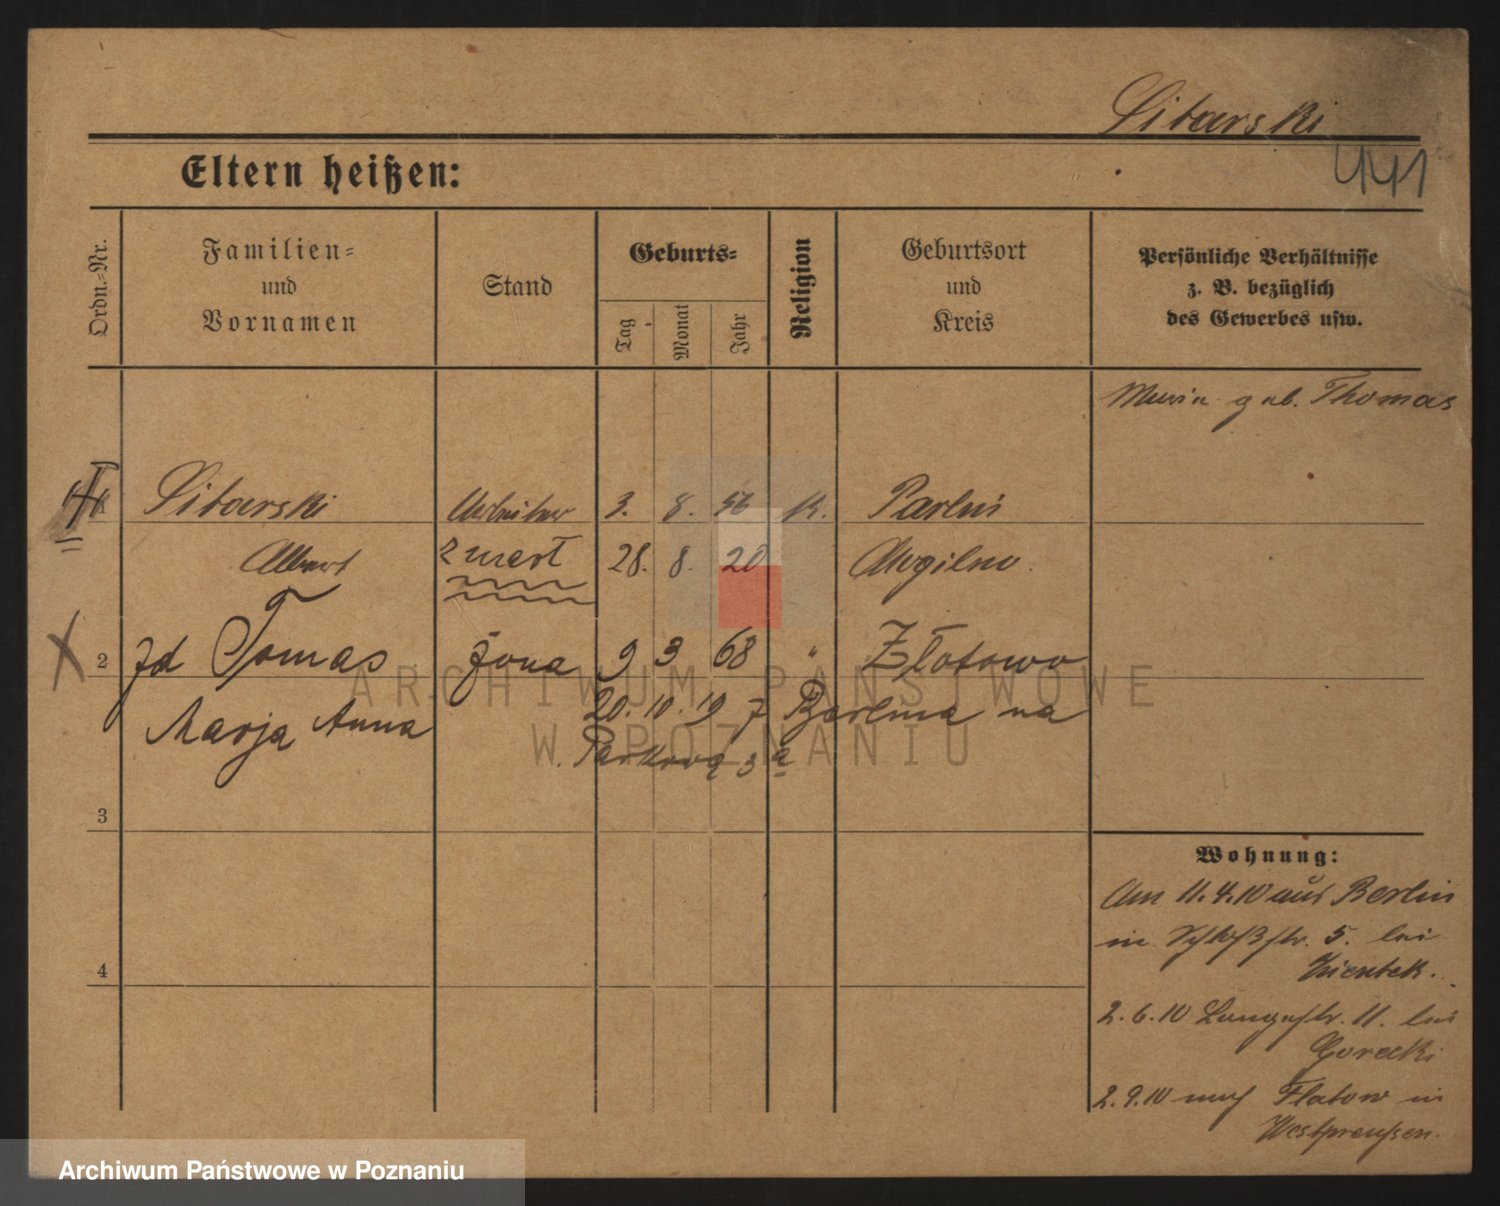 Sitarski
441
Eltern heißen:
Ordn.-Nr.
Familien-
und
Vornamen
Stand
Geburts-
Tag
Monat
Jahr
Religion
Geburtsort
und
Kreis
Persönliche Verhältnisse
z. B. bezüglich
des Gewerbes usw.
Maria geb. Thomas
Sitarski Arbeiter 3. 8. 56 K. Parlin
Albert zmarł 28. 8. 20 Mogilno.
2 Tomas żona 9 3 68 " Złotowo
Marja Anna 20. 10. 19 z Berlina na
Parkowa 3a
3
4
Wohnung:
Am 11.4.10 aus Berlin
in Schloßstr. 5. bei
2.6.10 Langestr. 11. bei
Gorecki
2.9.10 nach Flatow in
Westpreußen.
ARCHIWUM PAŃSTWOWE
W POZNANIU
Archiwum Państwowe w Poznaniu